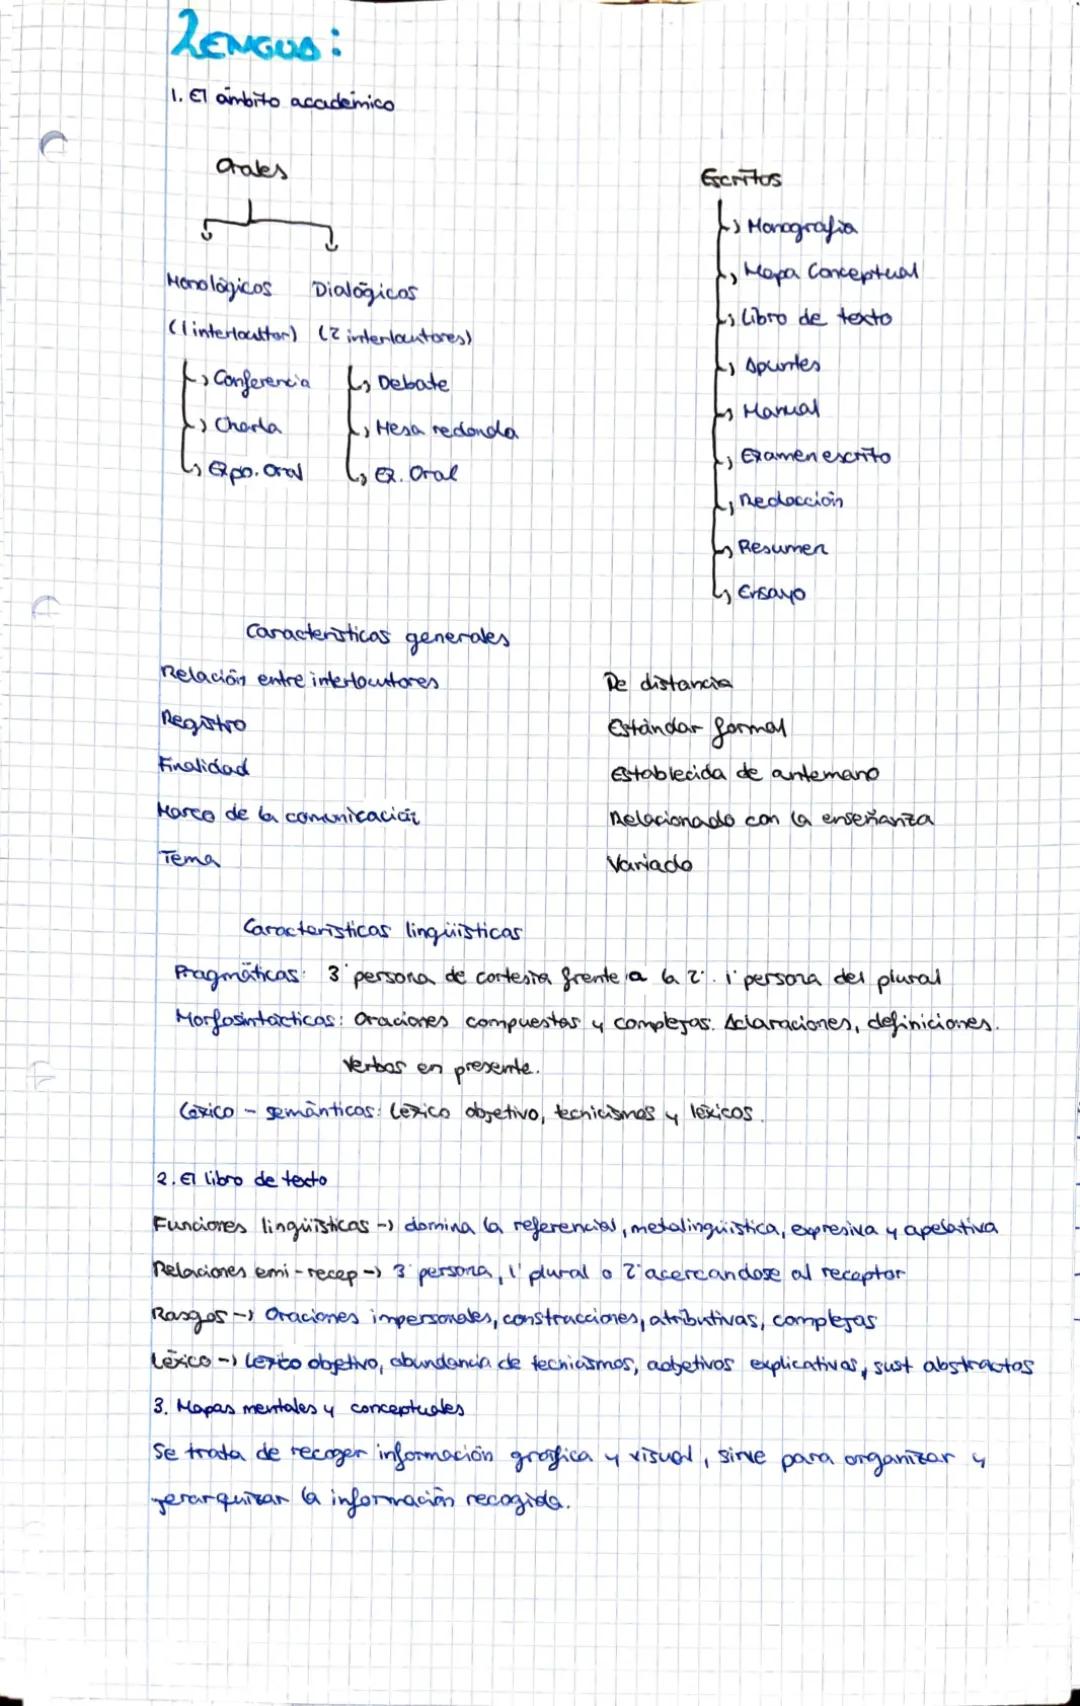 LENGUA:
1. El ámbito académico
Orales
Escritos
Monológicos Dialógicos
(1 interlocutor) (2 interlocutores)
Conferencia
Charla
Expo. Oral
Debate
Mesa redonda
Ex. Oral
Monografía
Mapa Conceptual
Libro de texto
Apuntes
Manual
Examen escrito
Redacción
Resumen
Ensayo
Características generales
Relación entre interlocutores De distancia
Registro Estándar formal
Finalidad Establecida de antemano
Marco de la comunicación Relacionado con la enseñanza
Tema Variado
Características lingüísticas
Pragmáticas: 3ª persona de cortesía frente a la 2ª. 1ª persona del plural
Morfosintácticas: Oraciones compuestas y complejas. Aclaraciones, definiciones.
Verbos en presente.
Léxico - semánticas: Léxico objetivo, tecnicismos y léxicos.
2. El libro de texto
Funciones lingüísticas -> domina la referencial, metalingüística, expresiva y apelativa
Relaciones emi-recep -> 3ª persona, 1ª plural o 2ª acercandose al receptor
Rasgos -> Oraciones impersonales, construcciones, atributivas, complejas
Léxico -> Léxico objetivo, abundancia de tecnicismos, adjetivos explicativos, sust abstractos
3. Mapas mentales y conceptuales
Se trata de recoger información gráfica y visual, sirve para organizar y
jerarquizar la información recogida.